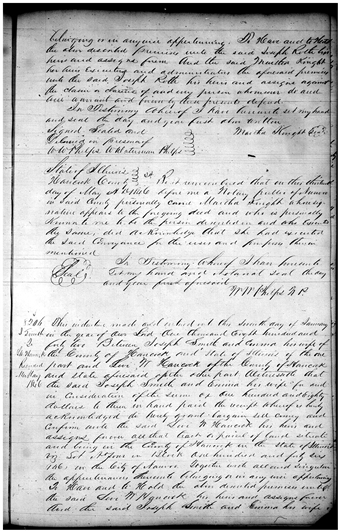 belonging or in anywise appertaining. To Have and to Hold
the above described premises unto the said Joseph Roth his
heirs and assigns forever. And the said Martha Knight
her heirs Executors and administrators the aforesaid premises
unto the said Joseph Roth his heirs and assigns against
the claim or claims of all and every person whomsoever do and
will warrant and forever by these presents defend
In Testimony Whereof I have hereunto set my hand
and seal the day and year first above written
Signed Sealed and
Martha Knight
Delivered in presence of
W W Phelps
State of Illinois
Hancock County
Be it remembered that on this
day of May A D 1846 before me a Notary public of
in said County personally came Martha Knight whose
nature appears to the foregoing deed and who is personally
known to me to be the person described in and who
the same, did acknowledge that she had executed
the said Conveyance for the uses and purposes therein
mentioned
In Testimony Whereof I have hereunto
Seal
set my hand and Notarial seal the day
and year first aforesaid
W W Phelps N P
This indenture made and entered into this day of January
J Smith
in the year of our Lord One thousand Eight hundred and
forty Between Joseph Smith and Emma his wife of
the County of Hancock and State of Illinois of the one
part and Levi W Hancock of the County of Hancock
and State aforesaid of the other part Witnesseth that
1846
the said Joseph Smith and Emma his wife for and
in Consideration of the sum of One hundred and Eighty
dollars to them in hand paid the receipt whereof is hereby
acknowledged do hereby grant bargain sell convey and
Confirm unto the said Levi W Hancock his heirs and
assigns forever all that tract or parcel of land situate
and being in the County of Hancock in the State of Illinois
in Block One hundred and forty six
146 in the City of Nauvoo Together with all and singular
the appurtenances thereunto belonging or in any wise appertaining
To Have and to Hold the above described premises unto
the said Levi W Hancock his heirs and assigns forever
And the said Joseph Smith and Emma his wife